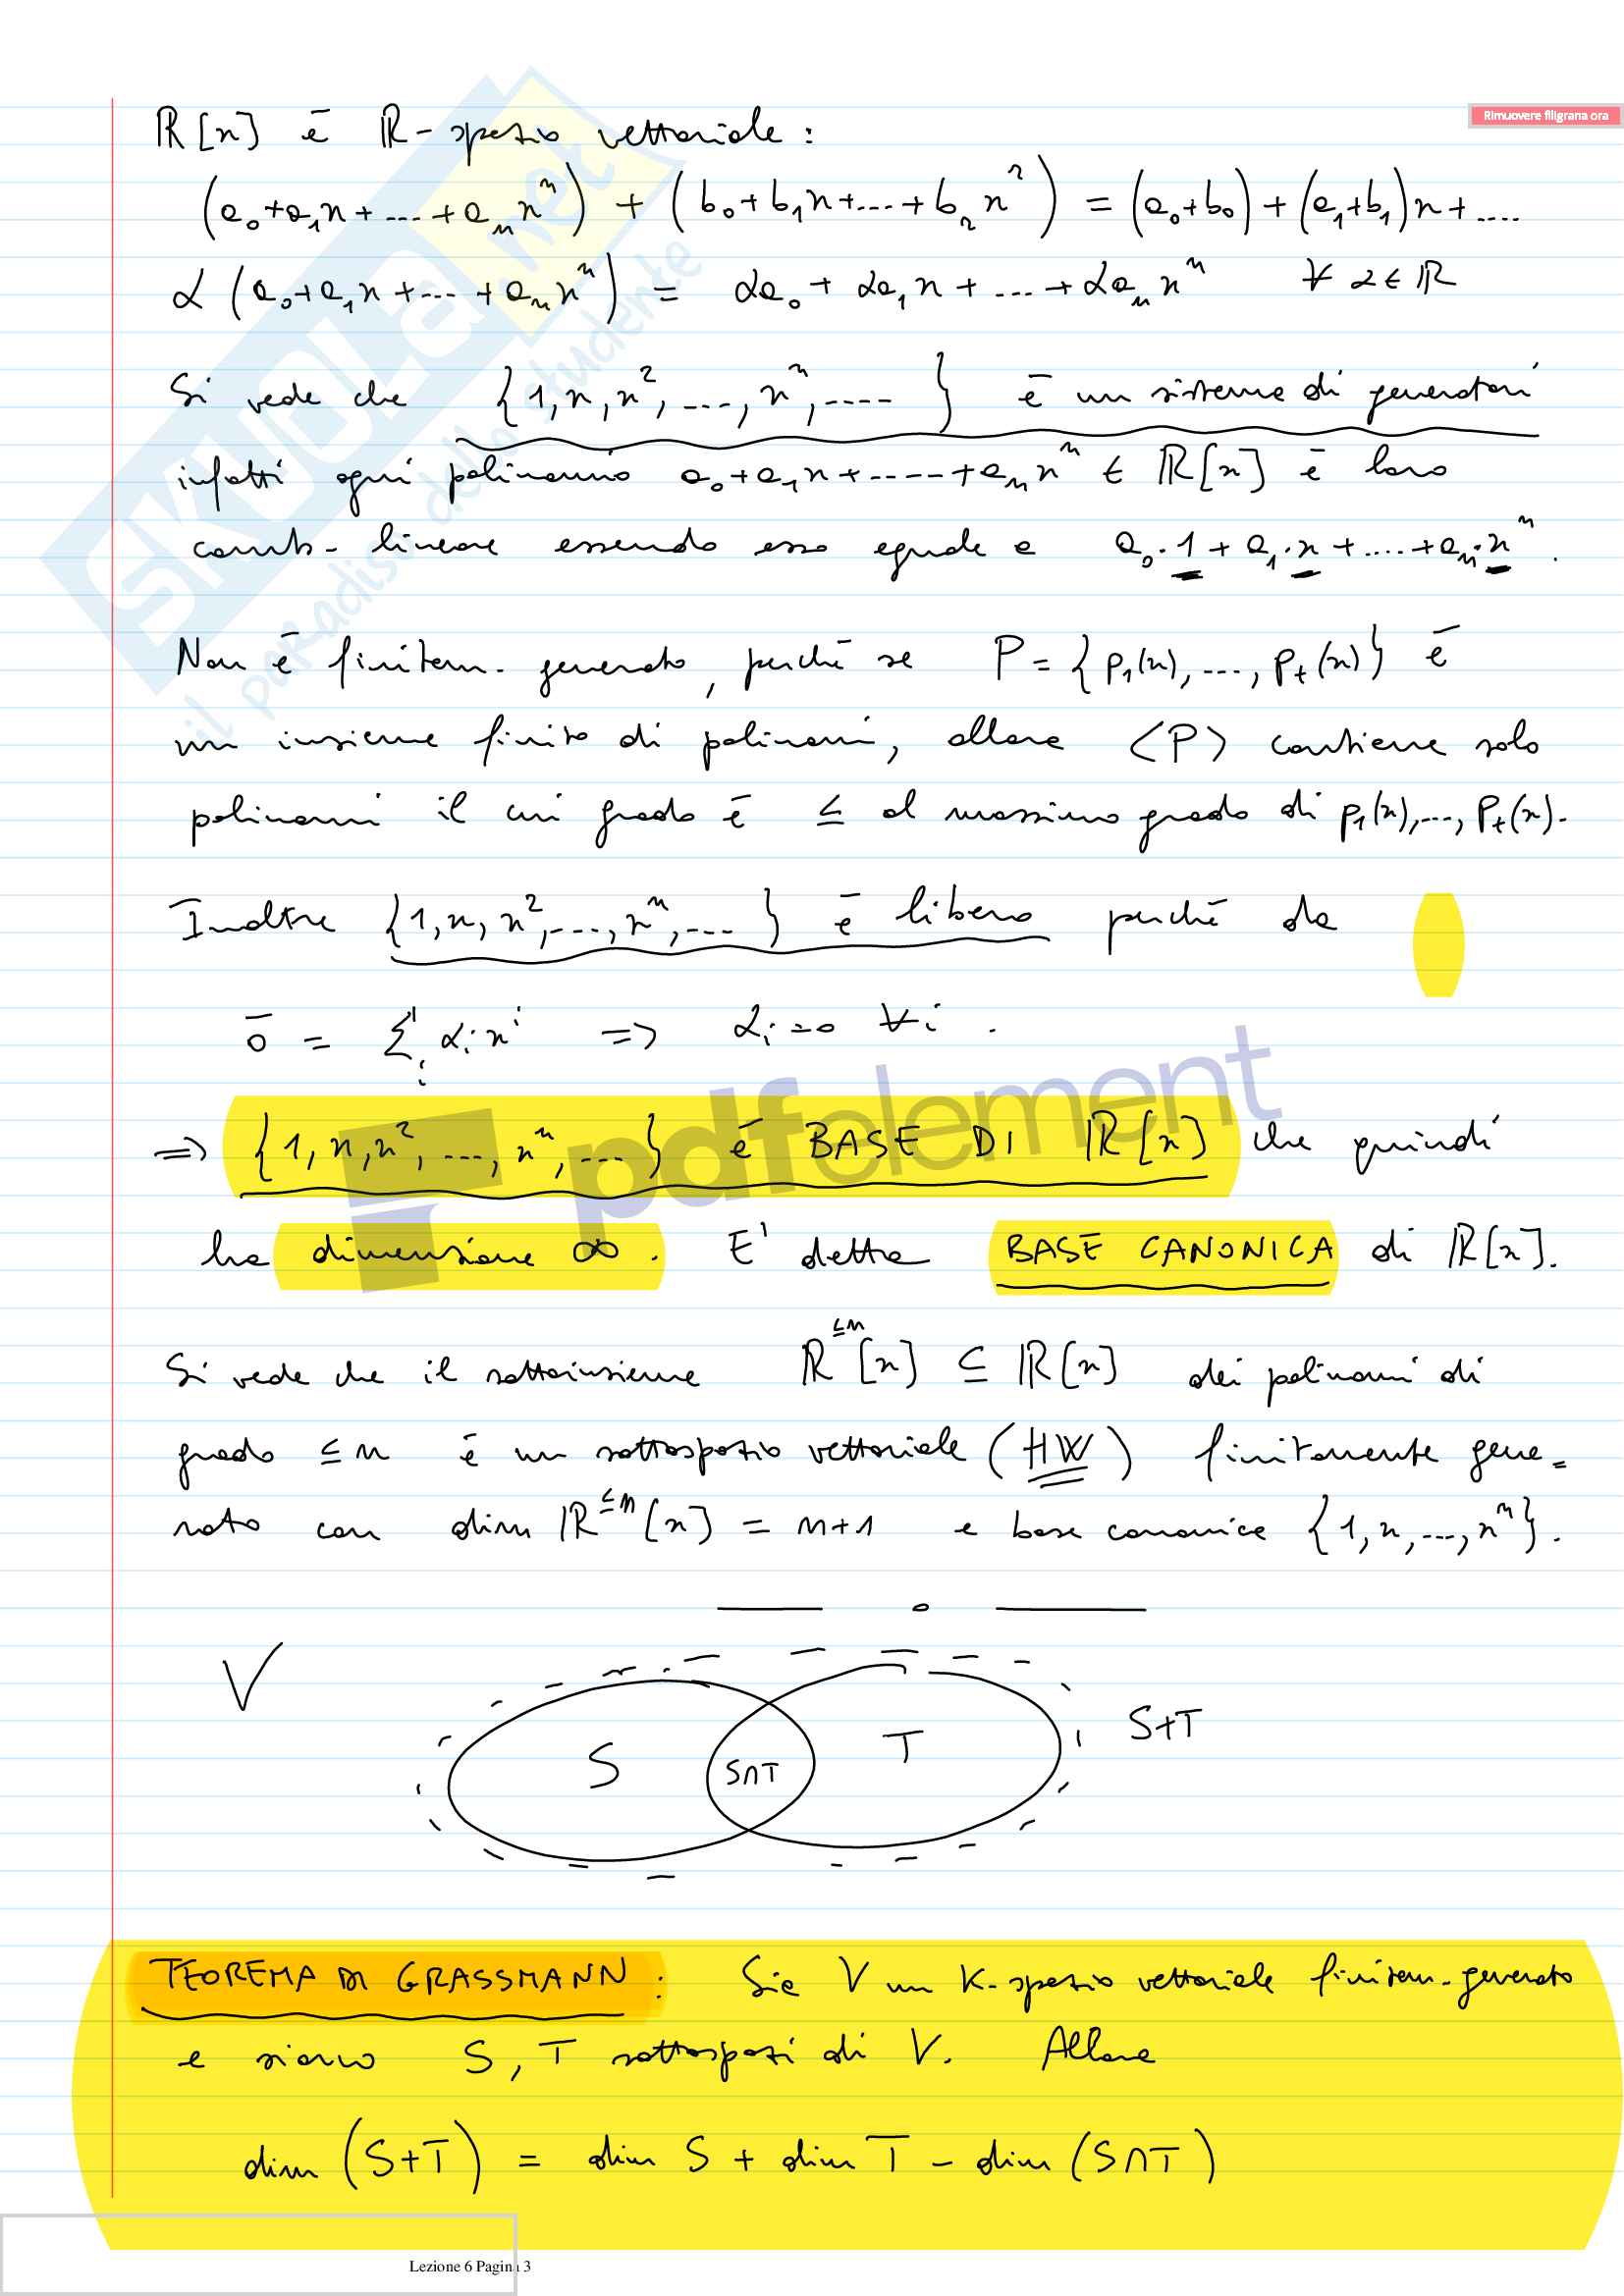 Rimuovere filigrana ora
ℝ[x] è ℝ-spazio vettoriale:
(a₀+a₁x+...+aₙxⁿ) + (b₀+b₁x+...+b₂x²) = (a₀+b₀)+(a₁+b₁)x+....
α(a₀+a₁x+...+aₙxⁿ) = αa₀+αa₁x+...+αaₙxⁿ ∀ α∈ℝ
Si vede che {1,x,x²,...,xⁿ,....} è un sistema di generatori
infatti ogni polinomio a₀+a₁x+.....+aₙxⁿ ∈ ℝ[x] è loro
comb. lineare essendo esso eguale a a₀·1+a₁·x+....+aₙ·xⁿ.
Non è finitam. generato, perché se P={p₁(x),...,pₜ(x)} è
un insieme finito di polinomi, allora <P> contiene solo
polinomi il cui grado è ≤ al massimo grado di p₁(x),...,pₜ(x).
Inoltre {1,x,x²,...,xⁿ,...} è libero perché da
0̄ = Σᵢ αᵢxⁱ => αᵢ=0 ∀i.
=> {1,x,x²,...,xⁿ,...} è BASE DI ℝ[x] che quindi
ha dimensione ∞. E' detta BASE CANONICA di ℝ[x].
Si vede che il sottoinsieme ℝ^≤n[x] ⊆ ℝ[x] dei polinomi di
grado ≤n è un sottospazio vettoriale (HW) finitamente gene=
rato con dim ℝ^≤n[x] = n+1 e base canonica {1,x,...,xⁿ}.
V
S
S∩T
T
S+T
TEOREMA DI GRASSMANN: Sia V un K-spazio vettoriale finitam. generato
e siano S,T sottospazi di V. Allora
dim(S+T) = dim S + dim T - dim(S∩T)
Lezione 6 Pagina 3
SKUOLA.net
il paradiso dello studente
pdfelement